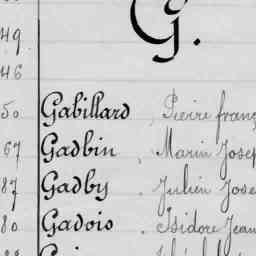 G.
49
46
50 Gabillard Pierre franç
67 Gadbin Marin Josep
87 Gadby Julien Jose
80 Gadois Isidore Jean